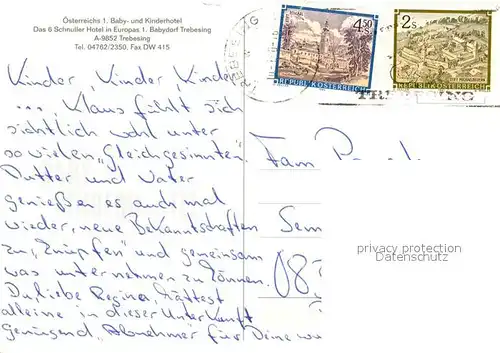 Österreichs 1. Baby- und Kinderhotel
Das 6 Schnuller Hotel in Europas 1. Babydorf Trebesing
A-9852 Trebesing
Tel. 04762/2350, Fax DW 415
4.50 S
REPUBLIK ÖSTERREICH
2 S
REPUBLIK ÖSTERREICH
TREBESING
Kinder, Kinder, Kinder
... Klaus fühlt sich
sichtlich wohl unter
so vielen „Gleichgesinnten".
Mutter und Vater
genießen es auch mal
wieder, neue Bekanntschaften
zu „knüpfen" und gemeinsam
was unternehmen zu können.
Du, liebe Regina, hättest
alleine in dieser Unterkunft
genügend „Abnehmer" für Deine
Fam
Sem
08
privacy protection
Datenschutz